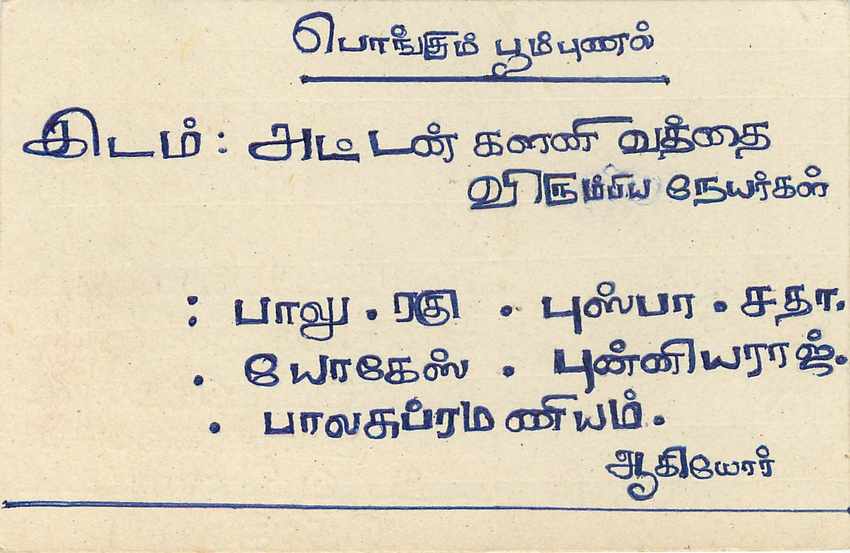 பொங்கும் பூம்புணல்
இடம் : அட்டன் களனி வத்தை
விரும்பிய நேயர்கள்
: பாலு . ரகு . புஸ்பா . சதா.
. யோகேஸ் . புன்னியராஜ்.
. பாலசுப்ரமணியம்.
ஆகியோர்